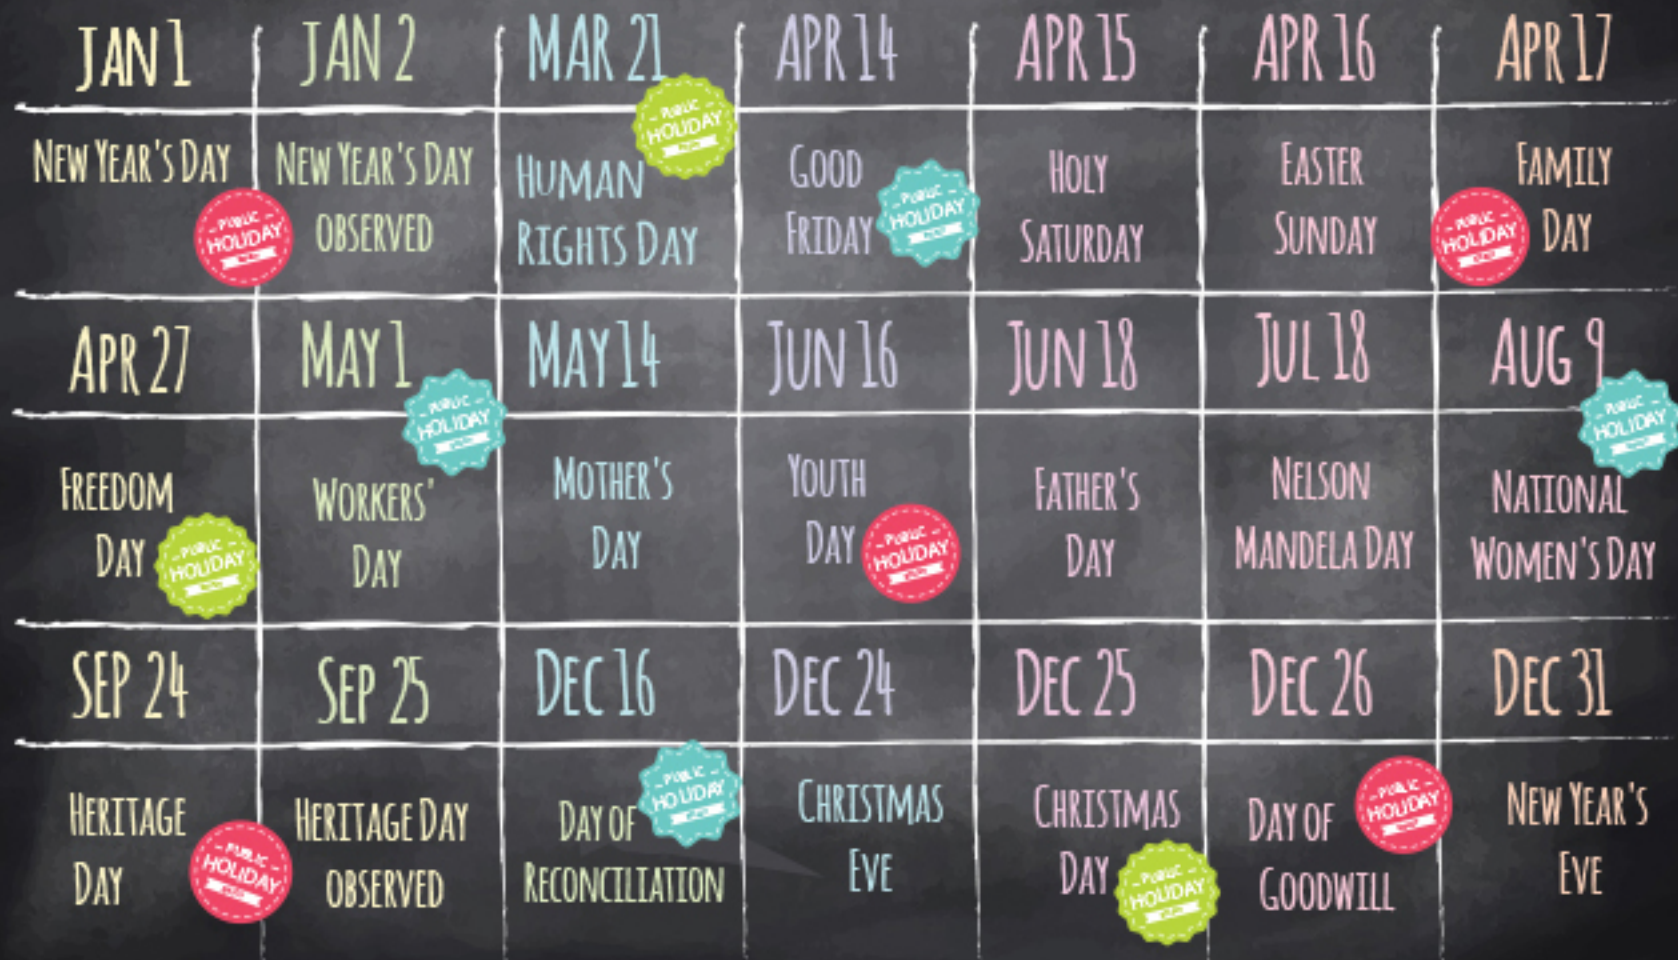 JAN 1
JAN 2
MAR 21
APR 14
APR 15
APR 16
APR 17
NEW YEAR'S DAY
PUBLIC
HOLIDAY
NEW YEAR'S DAY
OBSERVED
HUMAN
RIGHTS DAY
PUBLIC
HOLIDAY
GOOD
FRIDAY
PUBLIC
HOLIDAY
HOLY
SATURDAY
EASTER
SUNDAY
FAMILY
DAY
PUBLIC
HOLIDAY
APR 27
MAY 1
MAY 14
JUN 16
JUN 18
JUL 18
AUG 9
FREEDOM
DAY
PUBLIC
HOLIDAY
PUBLIC
HOLIDAY
WORKERS'
DAY
MOTHER'S
DAY
YOUTH
DAY
PUBLIC
HOLIDAY
FATHER'S
DAY
NELSON
MANDELA DAY
PUBLIC
HOLIDAY
NATIONAL
WOMEN'S DAY
SEP 24
SEP 25
DEC 16
DEC 24
DEC 25
DEC 26
DEC 31
HERITAGE
DAY
PUBLIC
HOLIDAY
HERITAGE DAY
OBSERVED
DAY OF
RECONCILIATION
PUBLIC
HOLIDAY
CHRISTMAS
EVE
CHRISTMAS
DAY
PUBLIC
HOLIDAY
DAY OF
GOODWILL
PUBLIC
HOLIDAY
NEW YEAR'S
EVE